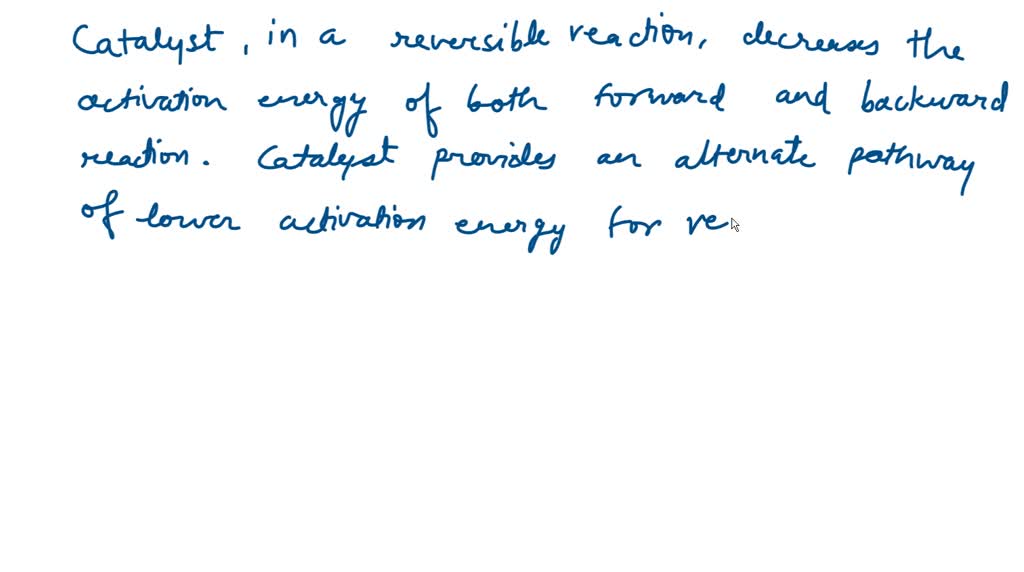 Catalyst, in a reversible reaction, decreases the
activation energy of both forward and backward
reaction. Catalyst provides an alternate pathway
of lower activation energy for re